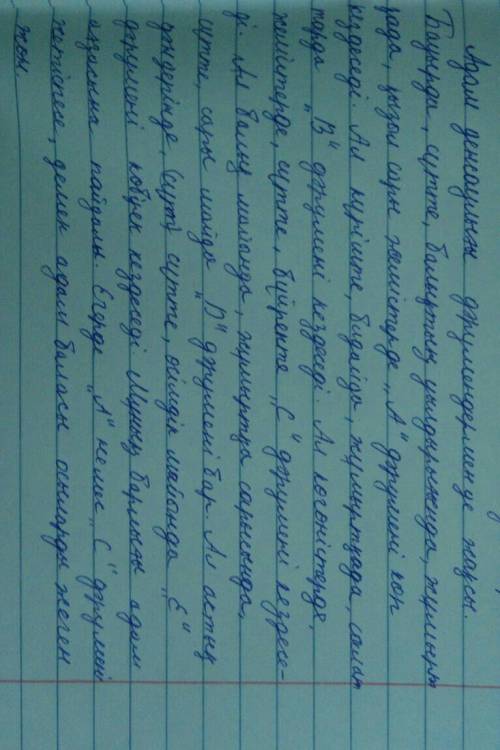 Адам денсаулығы дәрумендерменде жақсы.
Бауырда, сүтте, балықтың уылдырығында, жұмырт
қада, қызыл сары жемістерде „А" дәрумені көп
кездеседі. Ал күріште, бидайда, жұмыртқада, салат
тарда „В" дәрумені кездеседі. Ал көгөністерде,
жемістерде, сүтте, бүйректе „С" дәрумені кездесе-
ді. Ал балық майында, жұмыртқа сарысында,
сүтте, сары майда „D" дәрумені бар. Ал астық
дәндерінде, сүтте, өсімдік майында „Е"
дәрумені көбірек кездеседі. Мұның барлығы адам
ағзасына пайдалы. Егерде „А" немесе „С" дәрумені
жетіспесе, демек адам баласы оларды жеген
жоқ.